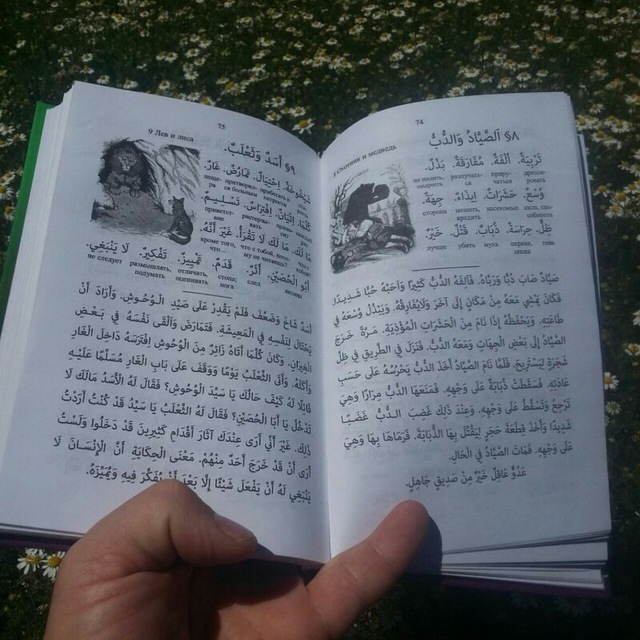 74
§٨ اَلصَّيَّادُ وَالدُّبُّ
8 Охотник и медведь
تَرْبِيَةٌ. اُلْفَةٌ. مُفَارَقَةٌ. بَذْلٌ.
وُسْعٌ. حَشَرَاتٌ. اِيذَاءٌ. جِهَةٌ.
стороны вредить насекомые силы, спо-
собность
ظِلٌّ. حِرَاسَةٌ. ذُبَابٌ. قَتْلٌ. خَيْرٌ.
лучше убить муха охрана. тень
صَيَّادٌ صَادَ دُبًّا وَرَبَّاهُ. فَأَلِفَهُ الدُّبُّ كَثِيرًا وَأَحَبَّهُ حُبًّا شَدِيدًا
فَكَانَ يَمْشِي مَعَهُ مِنْ مَكَانٍ إِلَى آخَرَ وَلَايُفَارِقُهُ. وَيَبْذُلُ وُسْعَهُ فِي
طَاعَتِهِ. وَيَحْفَظُهُ إِذَا نَامَ مِنَ الْحَشَرَاتِ الْمُؤْذِيَةِ. مَرَّةً خَرَجَ
الصَّيَّادُ إِلَى بَعْضِ الْجِهَاتِ وَمَعَهُ الدُّبُّ. فَنَزَلَ فِي الطَّرِيقِ فِي ظِلِّ
شَجَرَةٍ لِيَسْتَرِيحَ. فَلَمَّا نَامَ الصَّيَّادُ أَخَذَ الدُّبُّ يَحْرُسُهُ عَلَى حَسَبِ
عَادَتِهِ. فَسَقَطَتْ ذُبَابَةٌ عَلَى وَجْهِهِ. فَمَنَعَهَا الدُّبُّ مِرَارًا وَهِيَ
تَرْجِعُ وَتَسْقُطُ عَلَى وَجْهِهِ. وَعِنْدَ ذَلِكَ غَضِبَ الدُّبُّ غَضَبًا
شَدِيدًا وَأَخَذَ قِطْعَةَ حَجَرٍ لِيَقْتُلَ بِهَا الذُّبَابَةَ. فَرَمَاهَا بِهَا وَهِيَ
عَلَى وَجْهِهِ. فَمَاتَ الصَّيَّادُ فِي الْحَالِ.
عَدُوٌّ عَاقِلٌ خَيْرٌ مِنْ صَدِيقٍ جَاهِلٍ.
75
§٩ أَسَدٌ وَثَعْلَبٌ.
9 Лев и лиса
شَيْخُوخَةٌ. اِحْتِيَالٌ. تَمَارُضٌ. غَارٌ.
كُلَّمَا. اِتْيَانٌ. اِفْتِرَاسٌ. تَسْلِيمٌ.
مَا لَكَ. مَا لَكَ لَا تَقْرَأُ. غَيْرَ أَنَّهُ.
أَبُو الْحُصَيْنِ. أَثَرٌ. قَدَمٌ. تَمْيِيزٌ. تَفْكِيرٌ. لَا يَنْبَغِي.
не следует размышлять, отличать, стопа; след
подумать оценивать нога
أَسَدٌ شَاخَ وَضَعُفَ فَلَمْ يَقْدِرْ عَلَى صَيْدِ الْوُحُوشِ. وَأَرَادَ أَنْ
يَحْتَالَ لِنَفْسِهِ فِي الْمَعِيشَةِ. فَتَمَارَضَ وَأَلْقَى نَفْسَهُ فِي بَعْضِ
الْغِيرَانِ. وَكَانَ كُلَّمَا أَتَاهُ زَائِرٌ مِنَ الْوُحُوشِ اِفْتَرَسَهُ دَاخِلَ الْغَارِ
وَأَكَلَهُ. وَأَتَى الثَّعْلَبُ يَوْمًا وَوَقَفَ عَلَى بَابِ الْغَارِ مُسَلِّمًا عَلَيْهِ
قَائِلًا لَهُ كَيْفَ حَالُكَ يَا سَيِّدَ الْوُحُوشِ؟ فَقَالَ لَهُ الْأَسَدُ مَالَكَ لَا
تَدْخُلُ يَا أَبَا الْحُصَيْنِ؟ فَقَالَ لَهُ الثَّعْلَبُ يَا سَيِّدُ قَدْ كُنْتُ أَرَدْتُ
ذَلِكَ. غَيْرَ أَنِّي أَرَى عِنْدَكَ آثَارَ أَقْدَامٍ كَثِيرِينَ قَدْ دَخَلُوا وَلَسْتُ
أَرَى أَنْ قَدْ خَرَجَ أَحَدٌ مِنْهُمْ. مَعْنَى الْحِكَايَةِ أَنَّ الْإِنْسَانَ لَا
يَنْبَغِي لَهُ أَنْ يَفْعَلَ شَيْئًا إِلَّا بَعْدَ أَنْ يُفَكِّرَ فِيهِ وَيُمَيِّزَهُ.